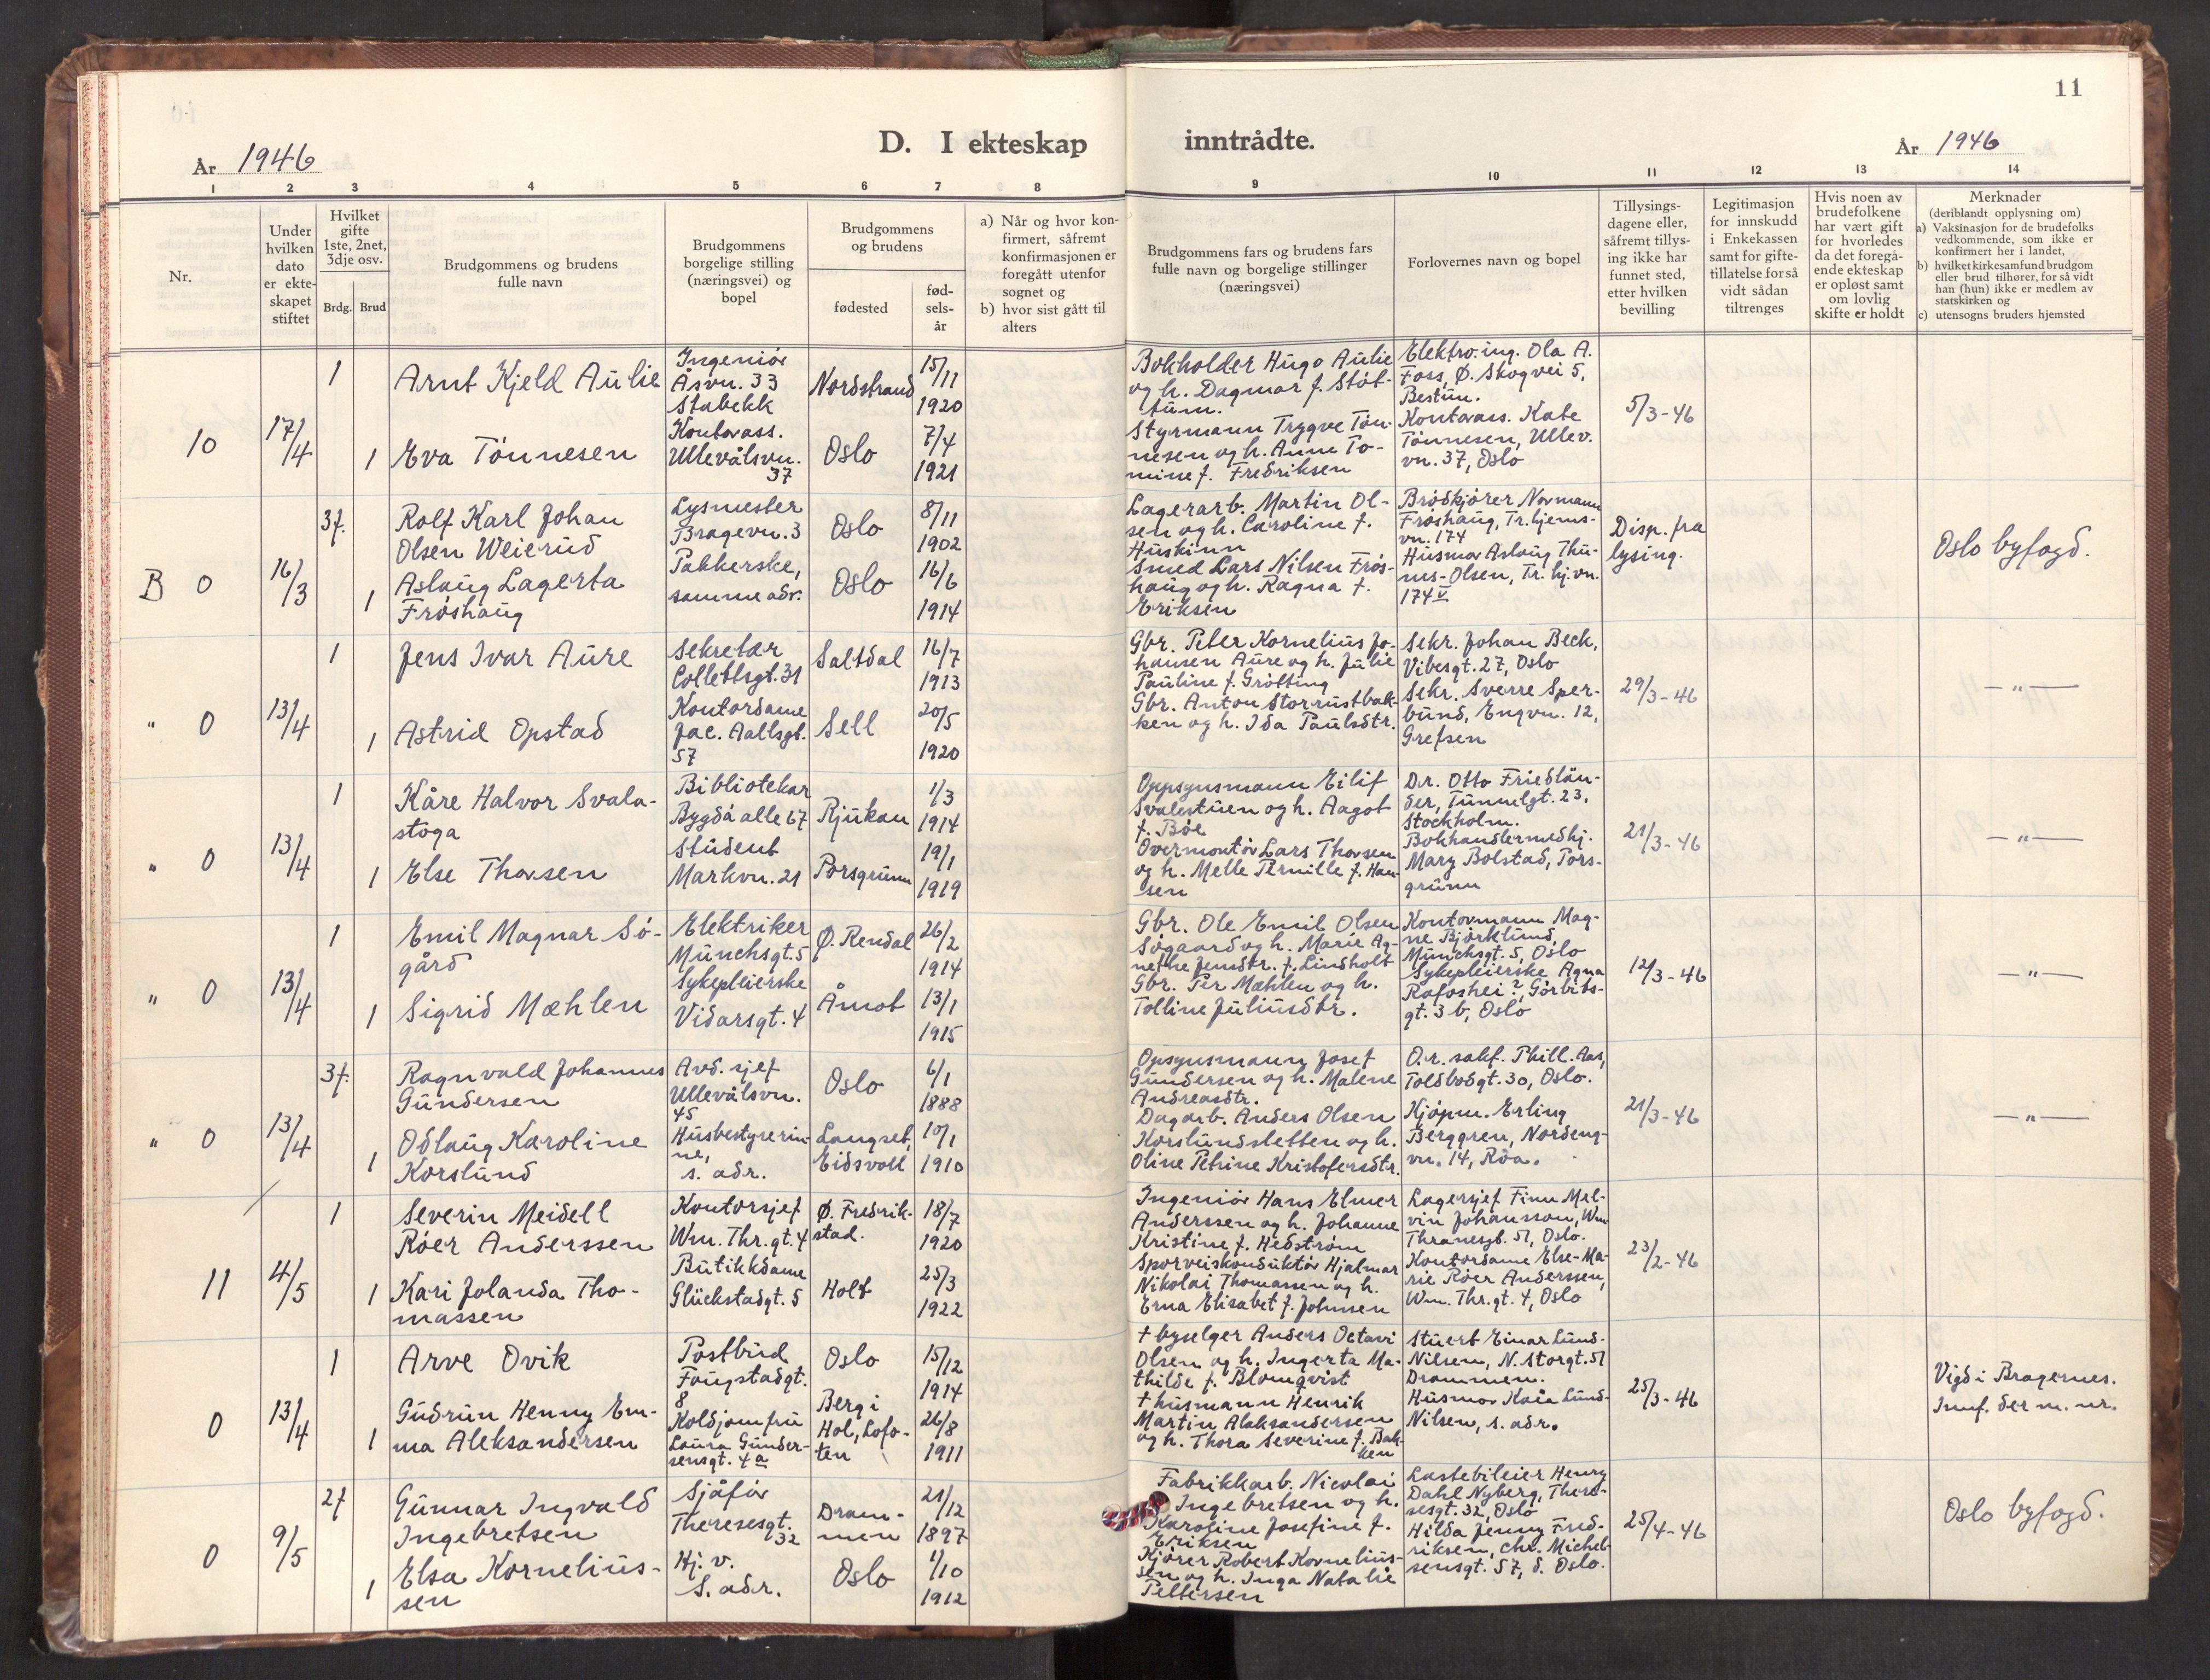 11
D. I ekteskap inntrådte.
År 1946
År 1946
1 2 3 4 5 6 7 8 9 10 11 12 13 14
Nr.
Under
hvilken
dato
er ekte-
skapet
stiftet
Hvilket
gifte
1ste, 2net,
3dje osv.
Brdg. Brud
Brudgommens og brudens
fulle navn
Brudgommens
borgelige stilling
(næringsvei) og
bopel
Brudgommens
og brudens
fødested
fød-
sels-
år
a) Når og hvor kon-
firmert, såfremt
konfirmasjonen er
foregått utenfor
sognet og
b) hvor sist gått til
alters
Brudgommens fars og brudens fars
fulle navn og borgelige stillinger
(næringsvei)
Forlovernes navn og bopel
Tillysings-
dagene eller,
såfremt tillys-
ing ikke har
funnet sted,
etter hvilken
bevilling
Legitimasjon
for innskudd
i Enkekassen
samt for gifte-
tillatelse for så
vidt sådan
tiltrenges
Hvis noen av
brudefolkene
har vært gift
før hvorledes
da det foregå-
ende ekteskap
er opløst samt
om lovlig
skifte er holdt
Merknader
(deriblandt opplysning om)
a) Vaksinasjon for de brudefolks
vedkommende, som ikke er
konfirmert her i landet,
b) hvilket kirkesamfund brudgom
eller brud tilhører, for så vidt
han (hun) ikke er medlem av
statskirken og
c) utensogns bruders hjemsted
10
17/4
1
Arnt Kjeld Aulie
Ingeniør
Åsvn. 33
Stabekk
Nordstrand
15/11
1920
1
Eva Tønnesen
Kontorass.
Ullevålsvn.
37
Oslo
7/4
1921
Bokholder Hugo Aulie
og h. Dagmar f. Støt-
tum.
Styrmann Trygve Tøn-
nesen og h. Anne To-
mine f. Fredriksen
Elektro.ing. Ola A.
Foss, Ø. Skogvei 5,
Bestum.
Kontorass. Kate
Tønnesen, Ullev.
vn. 37, Oslo
5/3-46
B 0
16/3
3f.
Rolf Karl Johan
Olsen Weierud
Lysmester
Bragevn. 3
Oslo
8/11
1902
1
Aslaug Lagerta
Frøshaug
Pakkerske,
samme adr.
Oslo
16/6
1914
Lagerarb. Martin Ol-
sen og h. Caroline f.
Huskinn
Smed Lars Nilsen Frøs-
haug og h. Ragna f.
Eriksen
Brødkjører Normann
Frøshaug, Tr.hjems-
vn. 174
Husmor Aslaug Thu-
nes-Olsen, Tr. hj.vn.
174 V
Disp. fra
lysing.
Oslo byfogd.
" 0
13/4
1
Jens Ivar Aure
Sekretær
Collettsgt. 31
Saltdal
16/7
1913
1
Astrid Opstad
Kontordame
Jac. Aallsgt.
57
Sell
20/5
1920
Gbr. Peter Kornelius Jo-
hansen Aure og h. Julie
Pauline f. Grøtting
Gbr. Anton Storrustbak-
ken og h. Ida Paulsdtr.
Sekr. Johan Beck,
Vibesgt. 27, Oslo
Sekr. Sverre Sper-
bund, Engvn. 12,
Grefsen
29/3-46
— " —
" 0
13/4
1
Kåre Halvor Svala-
stoga
Bibliotekar
Bygdø alle 67
Rjukan
1/3
1914
1
Else Thorsen
Student
Markvn. 21
Porsgrunn
19/1
1919
Oppsynsmann Eilif
Svalestuen og h. Aagot
f. Bøe
Overmontør Lars Thorsen
og h. Melle Pernille f. Han-
sen
Dr. Otto Friedlän-
der, Tunnelgt. 23,
Stockholm.
Bokhandlermedhj.
Mary Bolstad, Pors-
grunn
21/3-46
— " —
" 0
13/4
1
Emil Magnar Sø-
gård
Elektriker
Munchsgt. 5
Ø. Rendal
26/2
1914
1
Sigrid Mæhlen
Sykepleierske
Vidarsgt. 4
Åmot
13/1
1915
Gbr. Ole Emil Olsen
Søgaard og h. Marie Ag-
nethe Jensdtr. f. Lindholt
Gbr. Per Mæhlen og h.
Tolline Juliusdtr.
Kontormann Mag-
ne Bjørklund,
Munchsgt. 5, Oslo
Sykepleierske Agna
Rafoshei?, Gørbits-
gt. 3 b, Oslo
12/3-46
— " —
" 0
13/4
3f.
Ragnvald Johannes
Gundersen
Avd. sjef
Ullevålsvn.
45
Oslo
6/1
1888
1
Odlaug Karoline
Korslund
Husbestyrerin-
ne,
s. adr.
Langset,
Eidsvoll
10/1
1910
Opsynsmann Josef
Gundersen og h. Malene
Andreasdtr.
Dagarb. Anders Olsen
Korslundsletten og h.
Oline Petrine Kristofersdtr.
O.r. sakf. Phill. Aas,
Toldbodgt. 30, Oslo.
Kjøpm. Erling
Berggren, Nordeng-
vn. 14, Røa.
21/3-46
— " —
11
4/5
1
Severin Meidell
Røer Anderssen
Kontorsjef
Wm. Thr. gt. 4
Ø. Fredrik-
stad.
18/7
1920
1
Kari Jolanda Tho-
massen
Butikkdame
Glückstadgt. 5
Holt
25/3
1922
Ingeniør Hans Elmer
Anderssen og h. Johanne
Kristine f. Hedstrøm
Sporveiskonduktør Hjalmar
Nikolai Thomassen og h.
Erna Elisabet f. Johnsen
Lagersjef Finn Mel-
vin Johansson, Wm
Thranesgt. 51, Oslo.
Kontordame Else-Ma-
rie Røer Anderssen,
Wm. Thr. gt. 4, Oslo
23/2-46
0
13/4
1
Arve Ovik
Postbud
Faugstadgt.
8
Oslo
15/12
1914
1
Gudrun Henny Em-
ma Aleksandersen
Koldjomfru
Laura Gunder-
sensgt. 4 a
Berg i
Hol, Lofo-
ten
26/8
1911
† byselger Anders Octavi
Olsen og h. Ingerta Ma-
thilde f. Blomqvist
† husmann Henrik
Martin Aleksandersen
og h. Thora Severine f. Bak-
ken
Stuert Einar Lund-
Nilsen, N. Storgt. 51
Drammen.
Husmor Kaia Lund-
Nilsen, s. adr.
25/3-46
Vigd i Bragernes.
Innf. der m. nr.
0
9/5
2f
Gunnar Ingvald
Ingebretsen
Sjåfør
Theresesgt.
32
Dram-
men
21/12
1897
1
Elsa Kornelius-
sen
Hj. v.
S. adr.
Oslo
1/10
1912
Fabrikkarb. Nicolai
Ingebretsen og h.
Karoline Josefine f.
Eriksen
Kjører Robert Kornelius-
sen og h. Inga Natalie
Pettersen
Lastebileier Henry
Dahl Nyberg, There-
sesgt. 32, Oslo
Hilda Jenny Fred-
riksen, Chr. Michel-
sensgt. 57, d. Oslo.
25/4-46
Oslo byfogd.